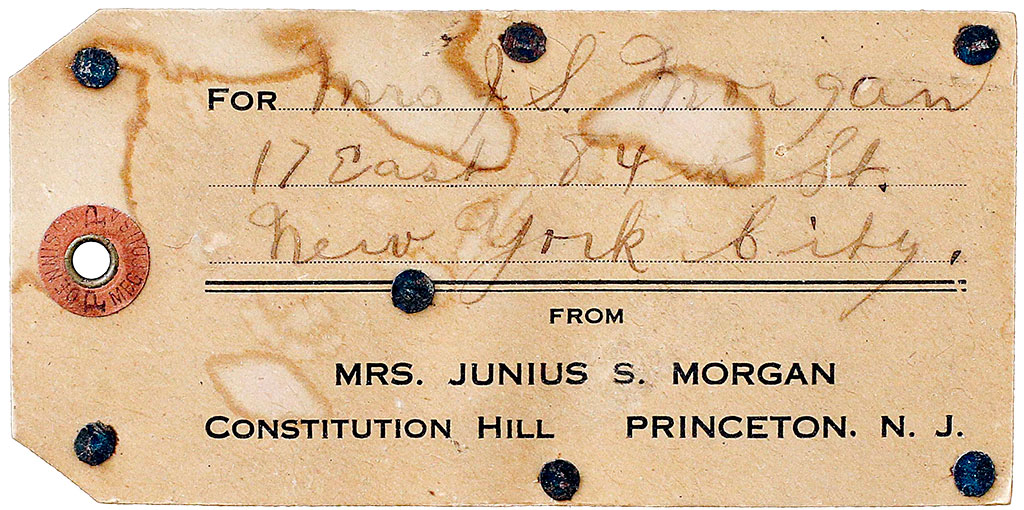 FOR Mrs J. S. Morgan
17 East 84th St.
New York City.
FROM
MRS. JUNIUS S. MORGAN
CONSTITUTION HILL PRINCETON. N. J.
DENNISON MFG